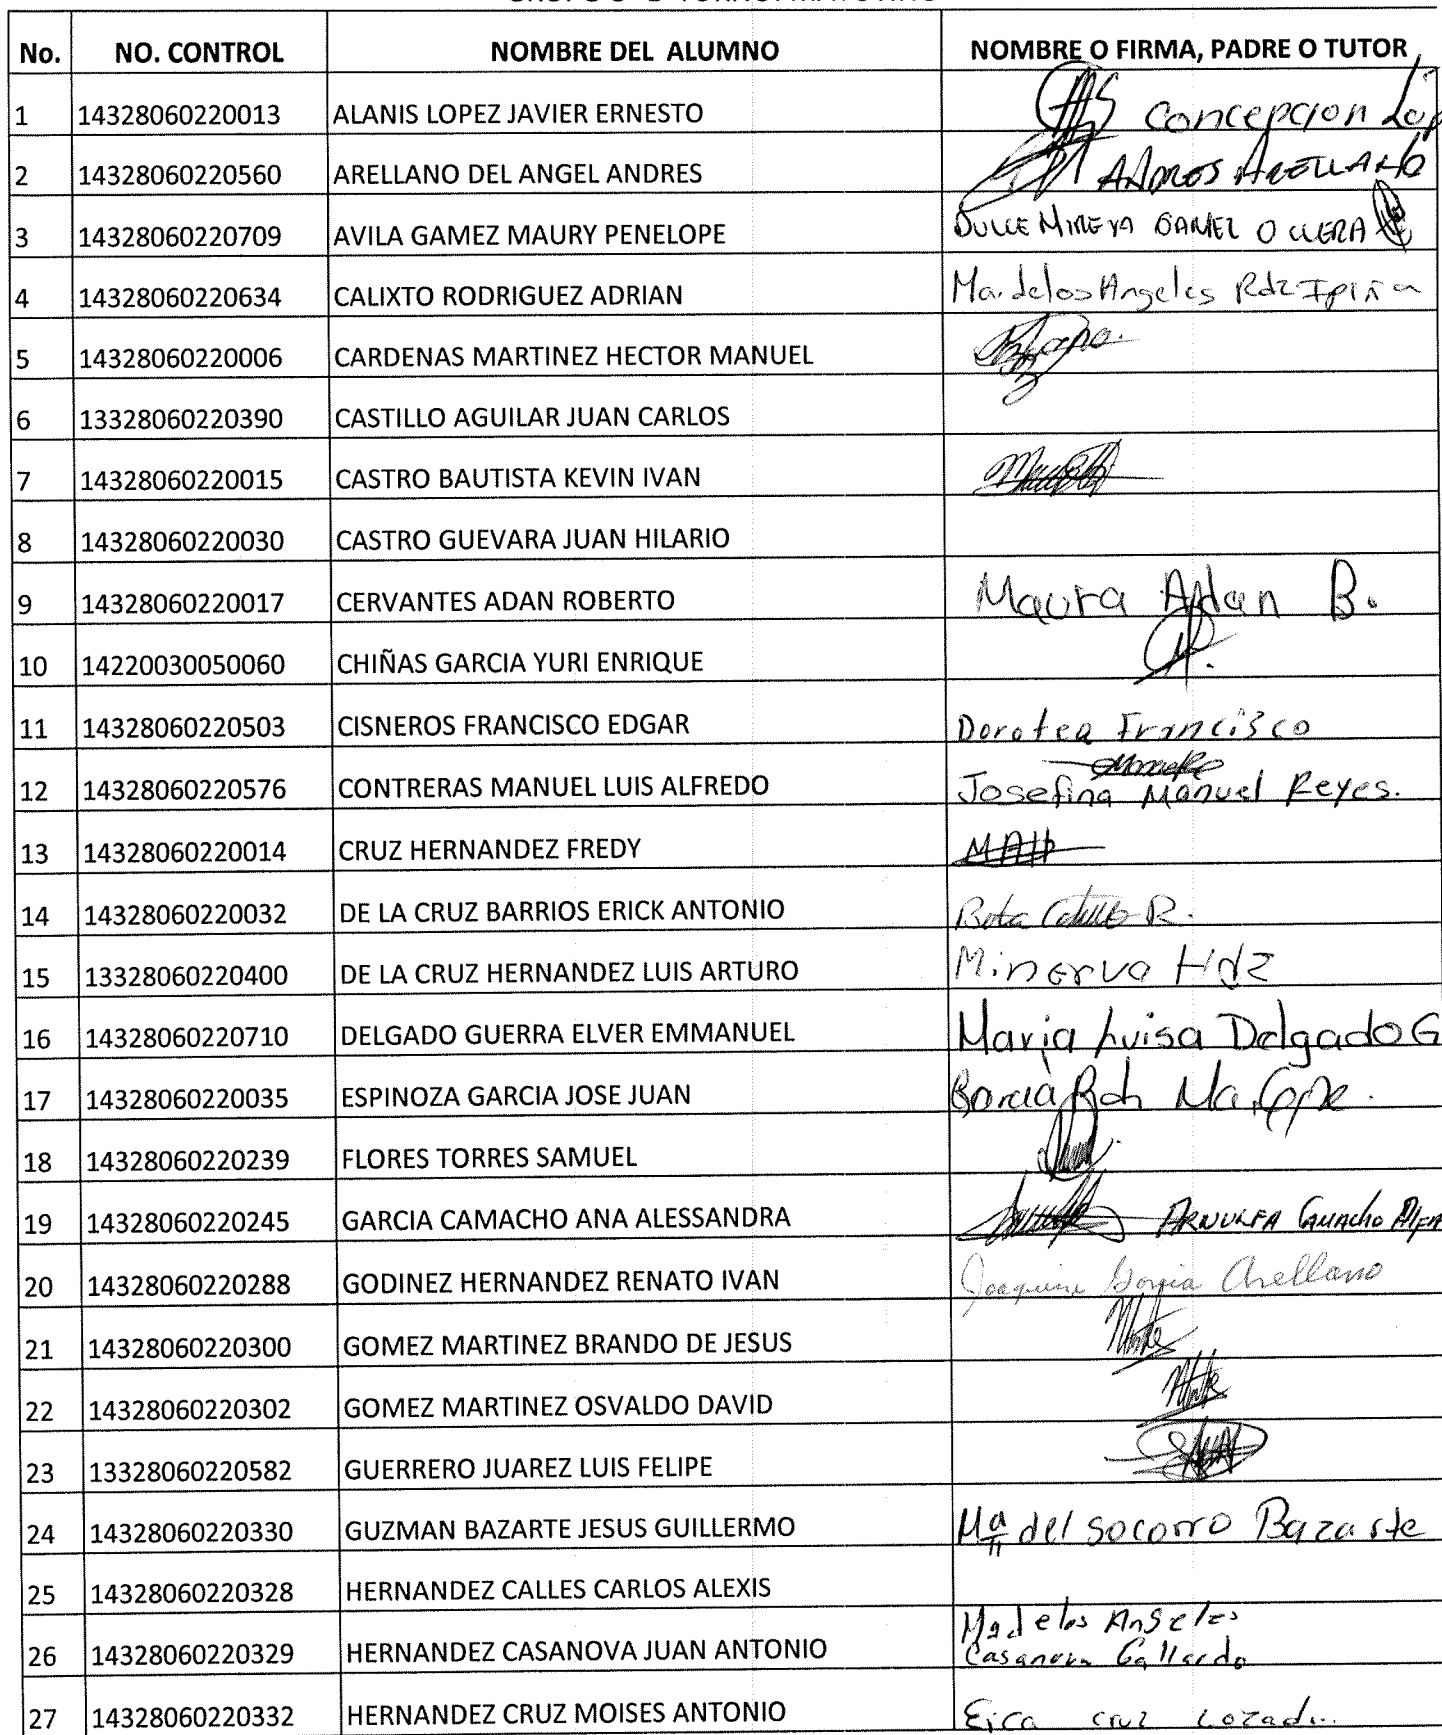 No. NO. CONTROL NOMBRE DEL ALUMNO NOMBRE O FIRMA, PADRE O TUTOR
1 14328060220013 ALANIS LOPEZ JAVIER ERNESTO Concepcion Lop
2 14328060220560 ARELLANO DEL ANGEL ANDRES ANDRES ARELLANO
3 14328060220709 AVILA GAMEZ MAURY PENELOPE DULCE MIREYA GAMEZ
4 14328060220634 CALIXTO RODRIGUEZ ADRIAN Ma. de los Angeles Rdz Ipiña
5 14328060220006 CARDENAS MARTINEZ HECTOR MANUEL
6 13328060220390 CASTILLO AGUILAR JUAN CARLOS
7 14328060220015 CASTRO BAUTISTA KEVIN IVAN
8 14328060220030 CASTRO GUEVARA JUAN HILARIO
9 14328060220017 CERVANTES ADAN ROBERTO Maura Adan B.
10 14220030050060 CHIÑAS GARCIA YURI ENRIQUE
11 14328060220503 CISNEROS FRANCISCO EDGAR Dorotea Francisco
12 14328060220576 CONTRERAS MANUEL LUIS ALFREDO Josefina Manuel Reyes.
13 14328060220014 CRUZ HERNANDEZ FREDY
14 14328060220032 DE LA CRUZ BARRIOS ERICK ANTONIO
15 13328060220400 DE LA CRUZ HERNANDEZ LUIS ARTURO Minerva Hdz
16 14328060220710 DELGADO GUERRA ELVER EMMANUEL Maria Luisa Delgado G
17 14328060220035 ESPINOZA GARCIA JOSE JUAN
18 14328060220239 FLORES TORRES SAMUEL
19 14328060220245 GARCIA CAMACHO ANA ALESSANDRA ARNULFA Camacho
20 14328060220288 GODINEZ HERNANDEZ RENATO IVAN Arellano
21 14328060220300 GOMEZ MARTINEZ BRANDO DE JESUS
22 14328060220302 GOMEZ MARTINEZ OSVALDO DAVID
23 13328060220582 GUERRERO JUAREZ LUIS FELIPE
24 14328060220330 GUZMAN BAZARTE JESUS GUILLERMO Ma del socorro Bazarte
25 14328060220328 HERNANDEZ CALLES CARLOS ALEXIS
26 14328060220329 HERNANDEZ CASANOVA JUAN ANTONIO Ma de los Angeles
Casanova Gallardo
27 14328060220332 HERNANDEZ CRUZ MOISES ANTONIO Erica cruz